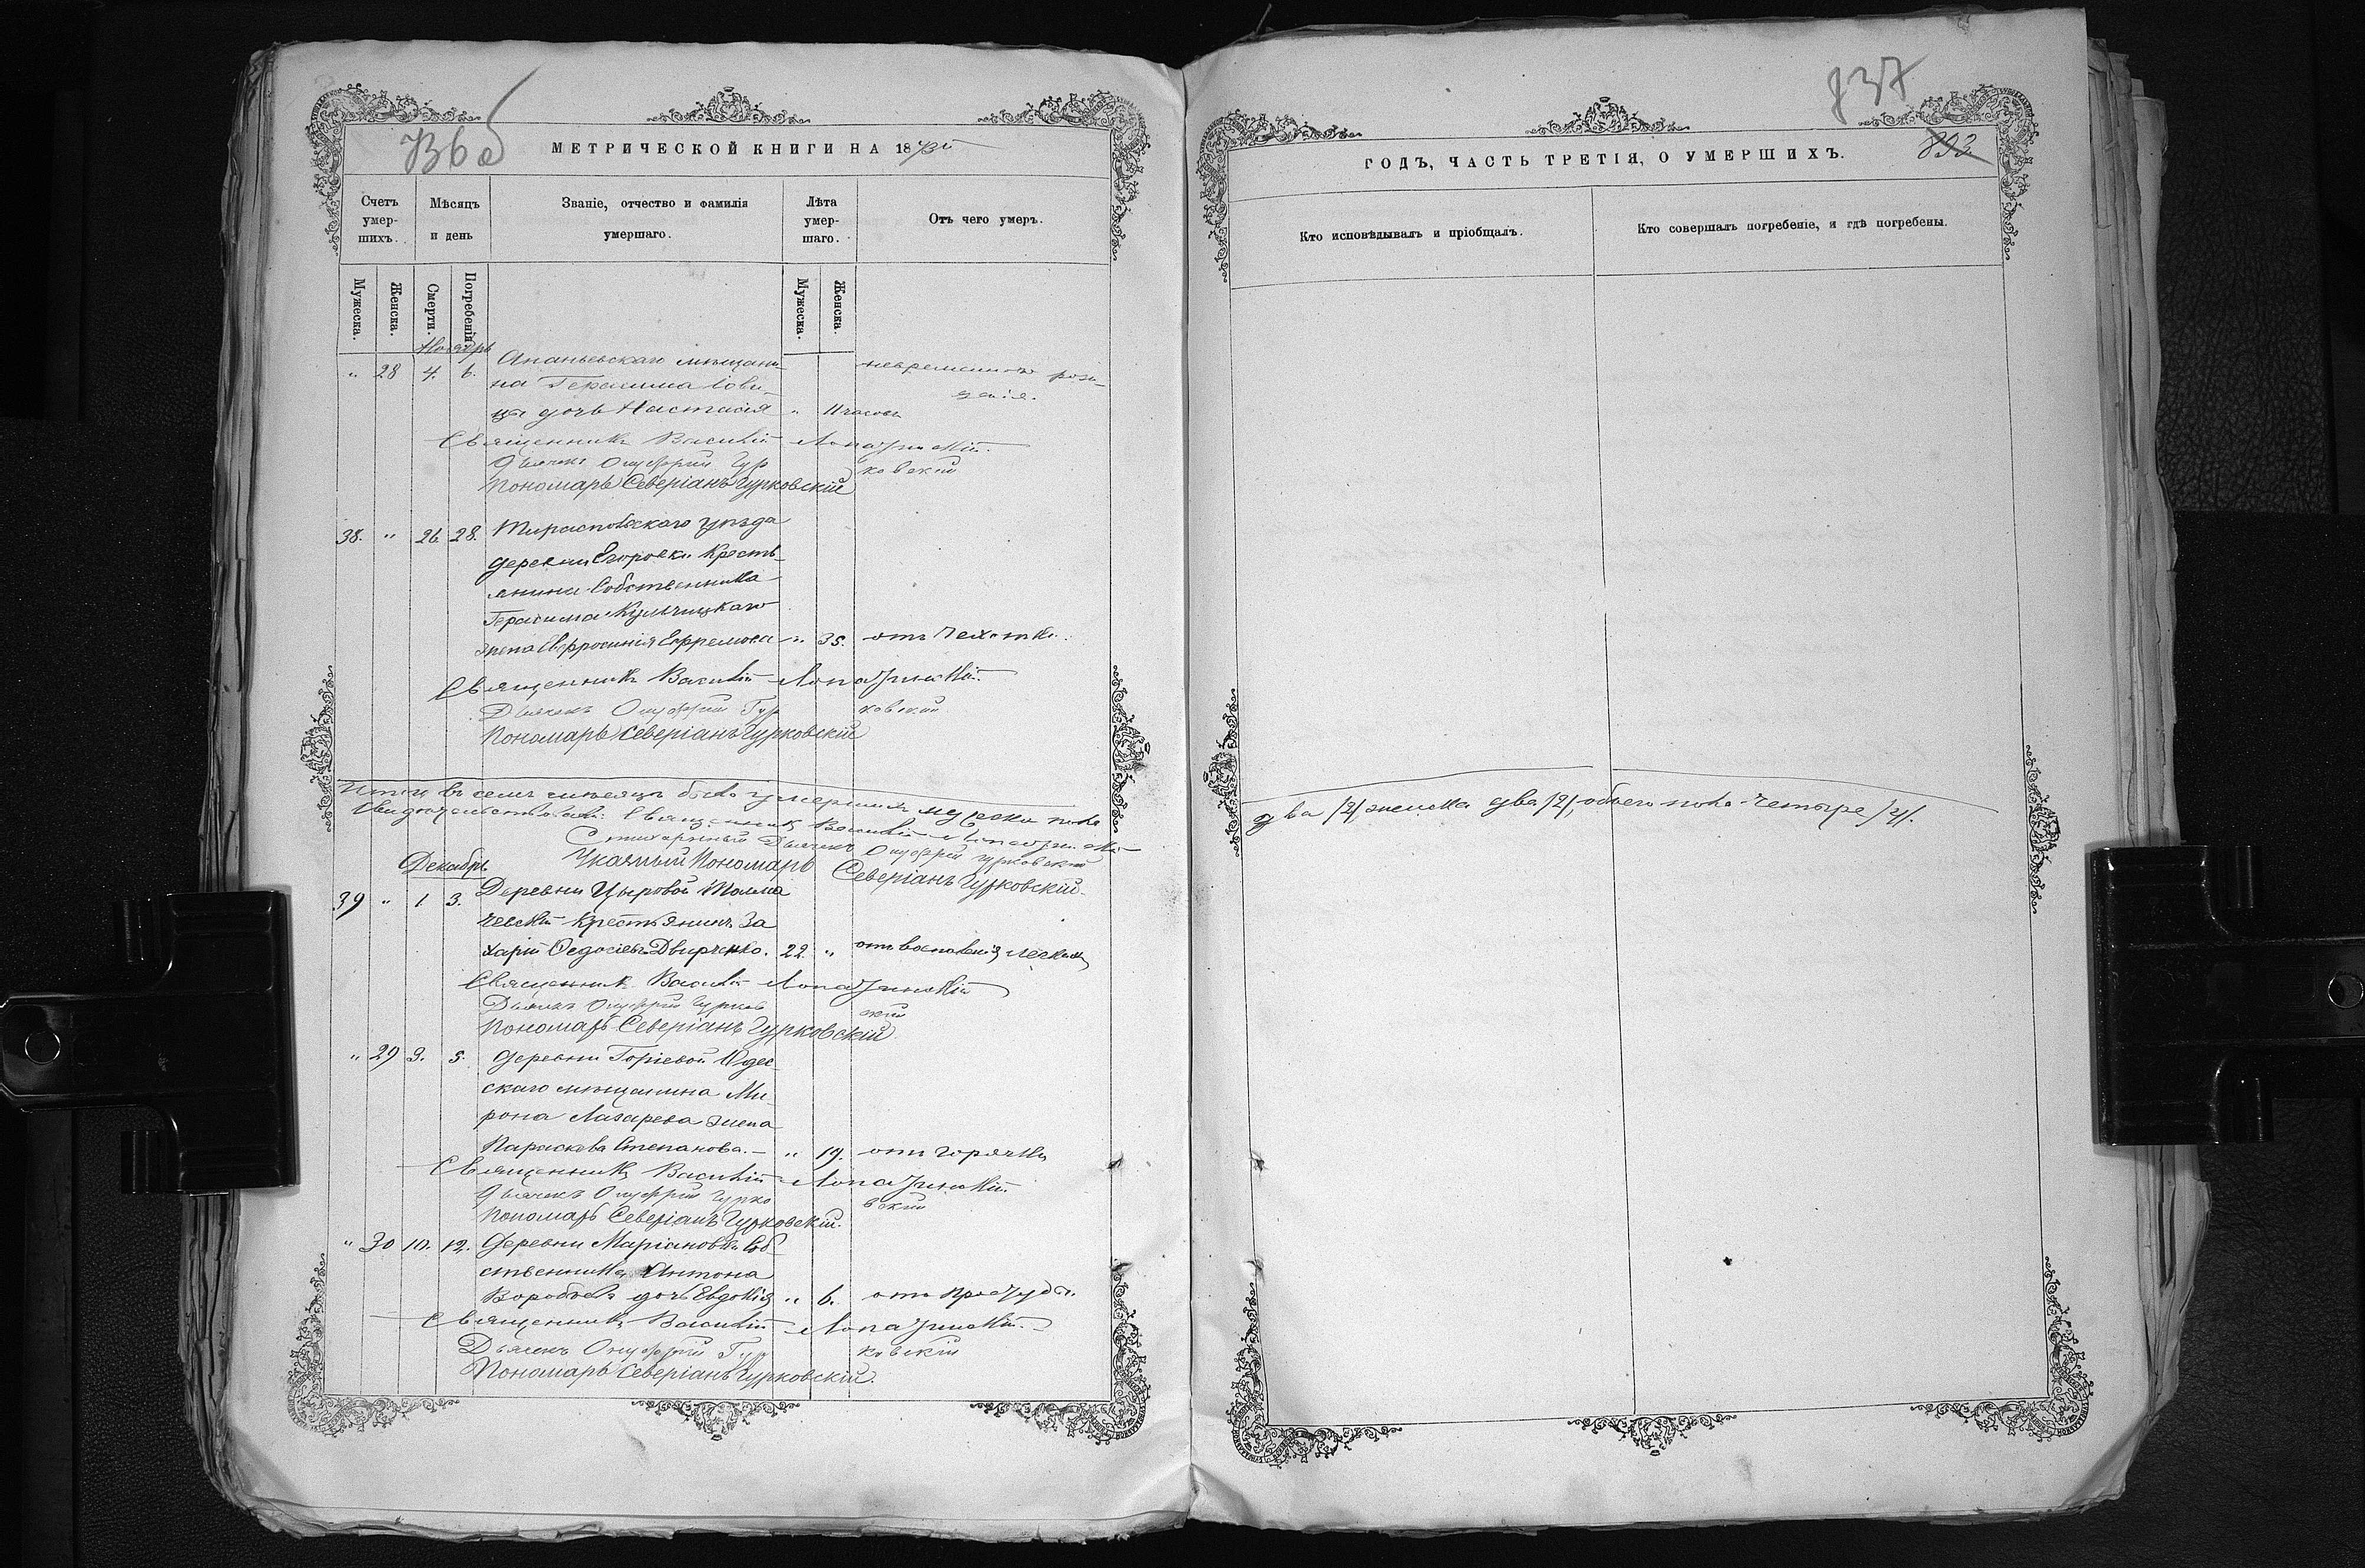 МЕТРИЧЕСКОЙ КНИГИ НА 18
Счетъ умер-шихъ.
Мѣсяцъ и день
Званіе, отчество и фамилія умершаго.
Лѣта умер-шаго.
Отъ чего умеръ.
Мужеска.
Женска.
Смерти.
Погребенія.
Мужеска.
Женска.
Ноябрь
" 28 4. 6. Ананьевскаго мѣщани-
на Герасима
дочь Настасія " 11 часовъ
Священникъ Василій
Дьячекъ Онуфрій Гурковскій
Пономарь Северіанъ Гурковскій
38. " 26 28. Тираспольскаго уѣзда
деревни Егоровки Кресть-
янина Собственника
Герасима Кульчицкаго
жена Евфросинія Ефремова " 35. отъ чехотки.
Священникъ Василій
Дьячекъ Онуфрій Гурковскій
Пономарь Северіанъ Гурковскій
Итого въ семъ мѣсяцѣ было умершихъ мужска пола
Свидѣтельствовали: Священникъ Василій
Стихарный Дьячекъ Онуфрій Гурковскій
Указный Пономарь Северіанъ Гурковскій.
Декабрь
39 " 1. 3. Деревни
Крестьянинъ За
харій Федосіевъ 22. " отъ воспаленія легкихъ
Священникъ Василій
Дьячекъ Онуфрій Гурковскій
Пономарь Северіанъ Гурковскій.
" 29 3. 5. Деревни Одес-
скаго мѣщанина Ми-
рона Лазарева жена
Параскева Степанова. " 19. отъ горячки
Священникъ Василій
Дьячекъ Онуфрій Гурковскій
Пономарь Северіанъ Гурковскій.
" 30 10. 12. Деревни Маріановки Соб-
ственника Антона
дочь Евдокія " 6. отъ простуды.
Священникъ Василій
Дьячекъ Онуфрій Гурковскій
Пономарь Северіанъ Гурковскій.
837
893
ГОДЪ, ЧАСТЬ ТРЕТІЯ, О УМЕРШИХЪ.
Кто исповѣдывалъ и пріобщалъ.
Кто совершалъ погребеніе, и гдѣ погребены.
два /2/ женска два /2/, обоего пола четыре /4/.